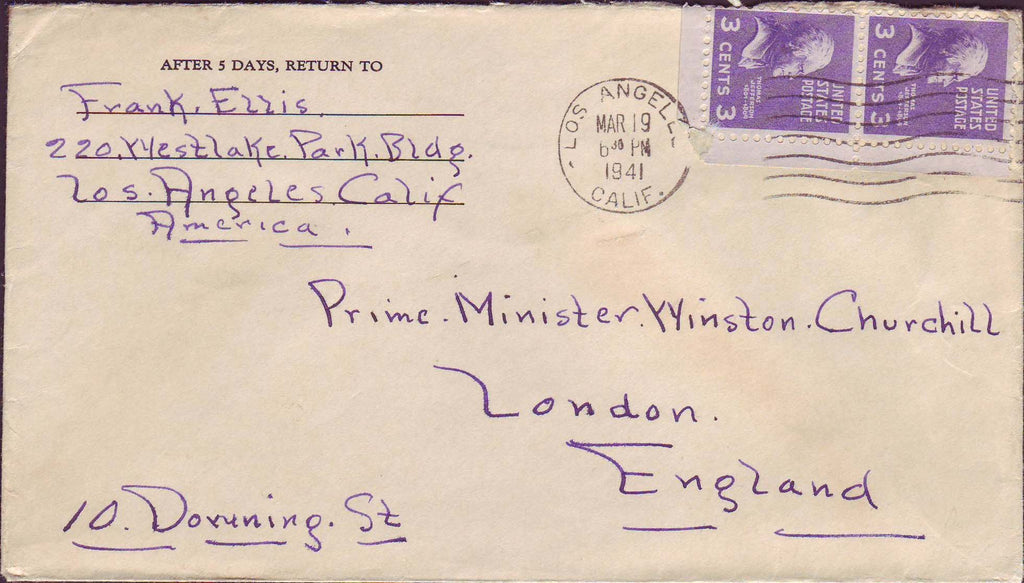 AFTER 5 DAYS, RETURN TO
Frank. Ellis.
220. Westlake. Park. Bldg.
Los. Angeles Calif
America.
LOS ANGELES
MAR 19
6 30 PM
1941
CALIF.
3 CENTS 3
THOMAS JEFFERSON
UNITED STATES POSTAGE
3 CENTS 3
THOMAS JEFFERSON
UNITED STATES POSTAGE
Prime. Minister. Winston. Churchill
London.
England
10. Downing. St